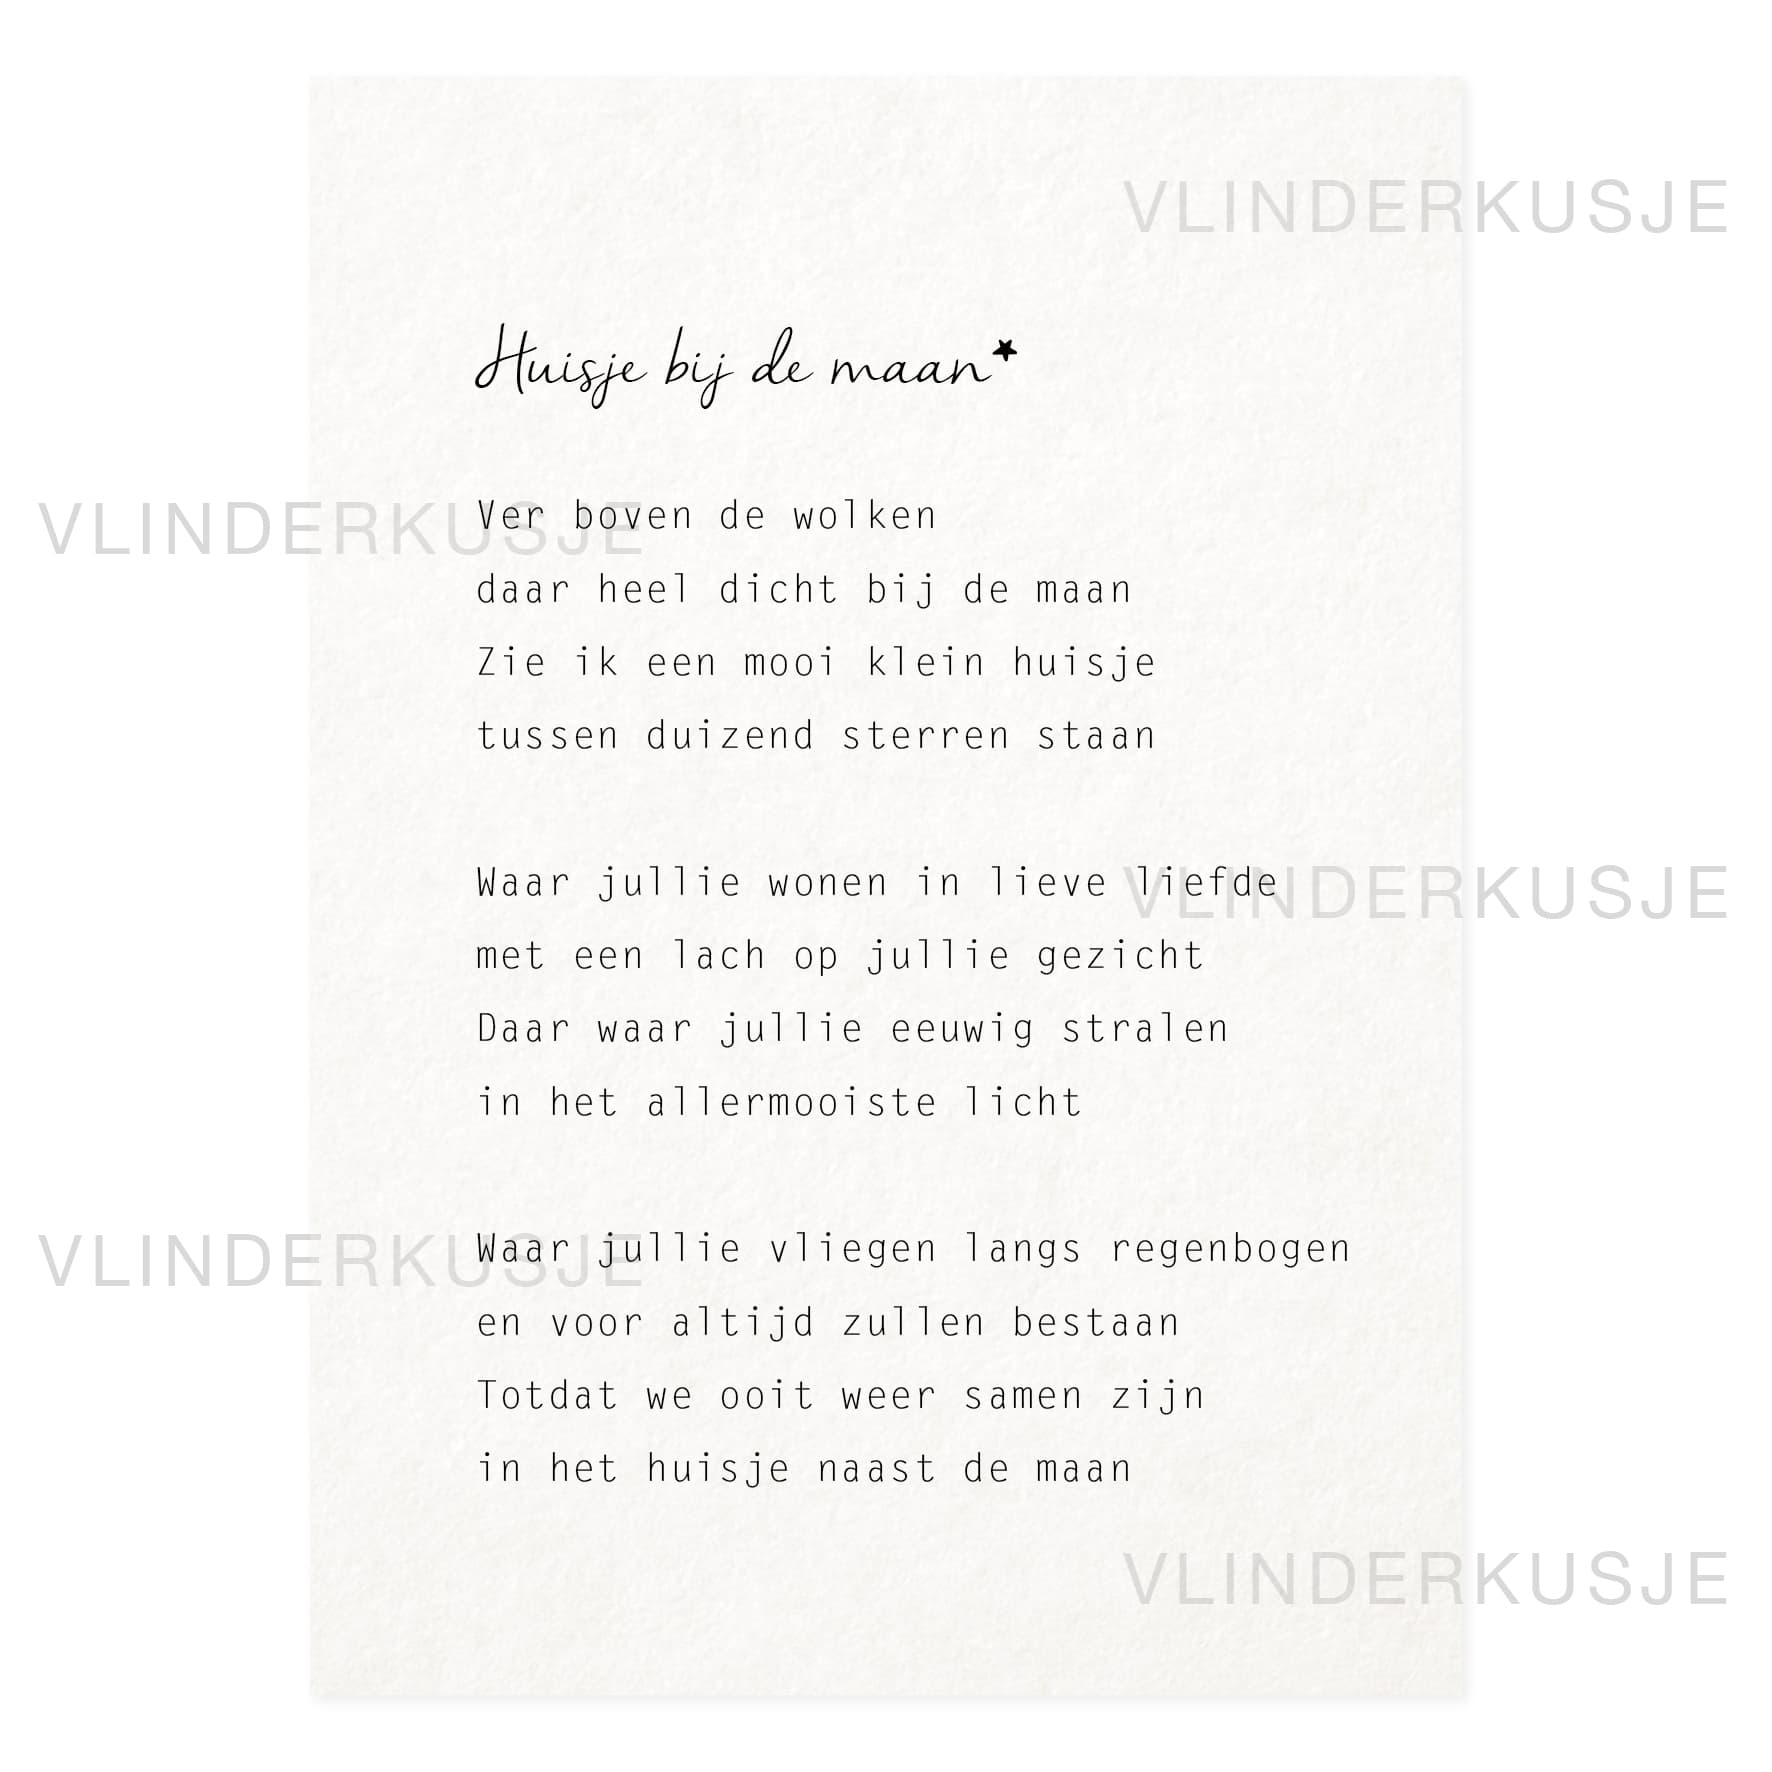 VLINDERKUSJE
Huisje bij de maan*
VLINDERKUSJE
Ver boven de wolken
daar heel dicht bij de maan
Zie ik een mooi klein huisje
tussen duizend sterren staan
Waar jullie wonen in lieve liefde
VLINDERKUSJE
met een lach op jullie gezicht
Daar waar jullie eeuwig stralen
in het allermooiste licht
Waar jullie vliegen langs regenbogen
VLINDERKUSJE
en voor altijd zullen bestaan
Totdat we ooit weer samen zijn
in het huisje naast de maan
VLINDERKUSJE